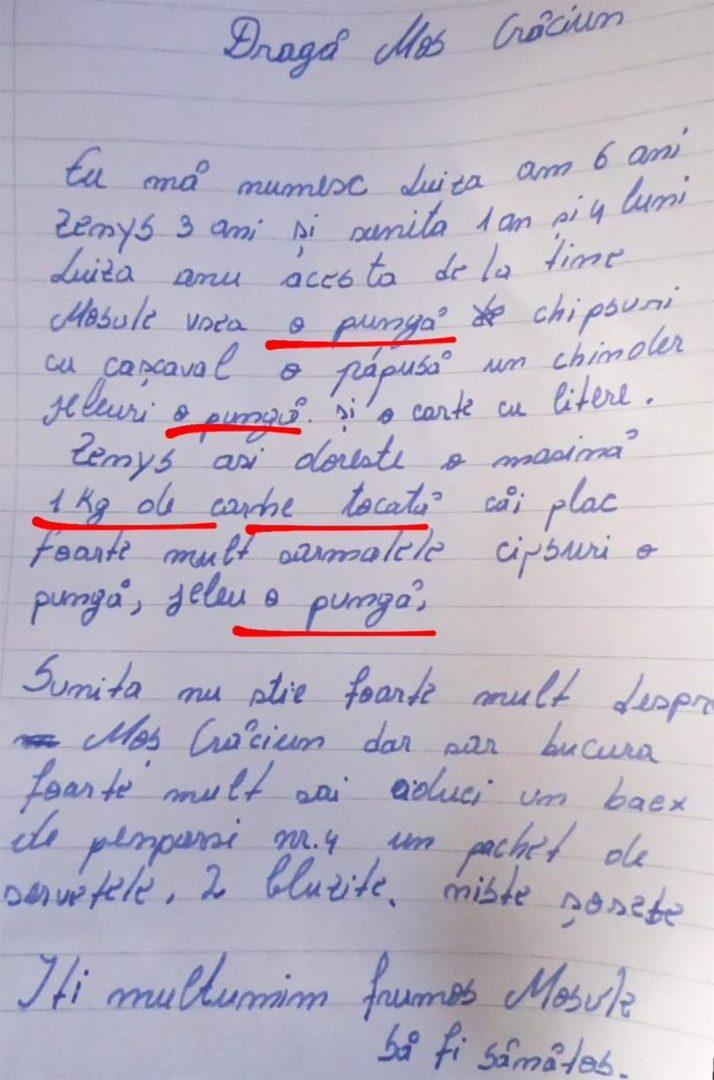 Dragă Mos Crăciun
Eu mă numesc Luiza am 6 ani
Zemys 3 ani și sunita 1 an și 4 luni
Luiza anu acesta de la tine
Mosule vrea o pungă de chipsuri
cu cașcaval o păpusă un chinder
jeleuri o pungă. și o carte cu litere.
Zemys asi doreste o masină
1 Kg de carne tocată căi plac
foarte mult sarmalele cipsuri o
pungă, jeleu o pungă,
Sunita nu stie foarte mult despre
Moș Crăciun dar sar bucura
foarte mult sai aduci un baex
de penparsi nr.4 un pachet de
servetele, 2 bluzite, niste șosete
Iti multumim frumos Mosule
să fi sănătos.